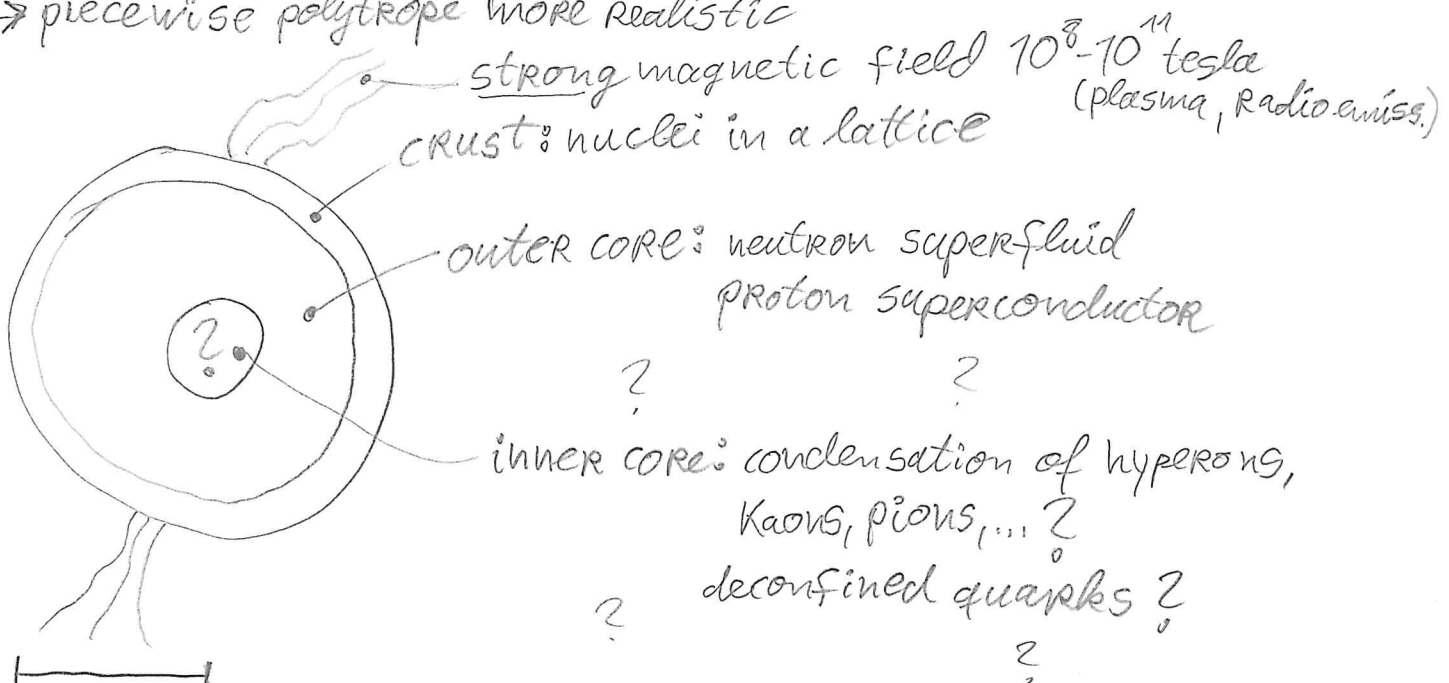 → piecewise polytrope more realistic
strong magnetic field 10⁸-10¹¹ tesla
(plasma, radio emiss.)
crust: nuclei in a lattice
outer core: neutron superfluid
proton superconductor
?
? ?
inner core: condensation of hyperons,
Kaons, pions,... ?
deconfined quarks ?
?
?